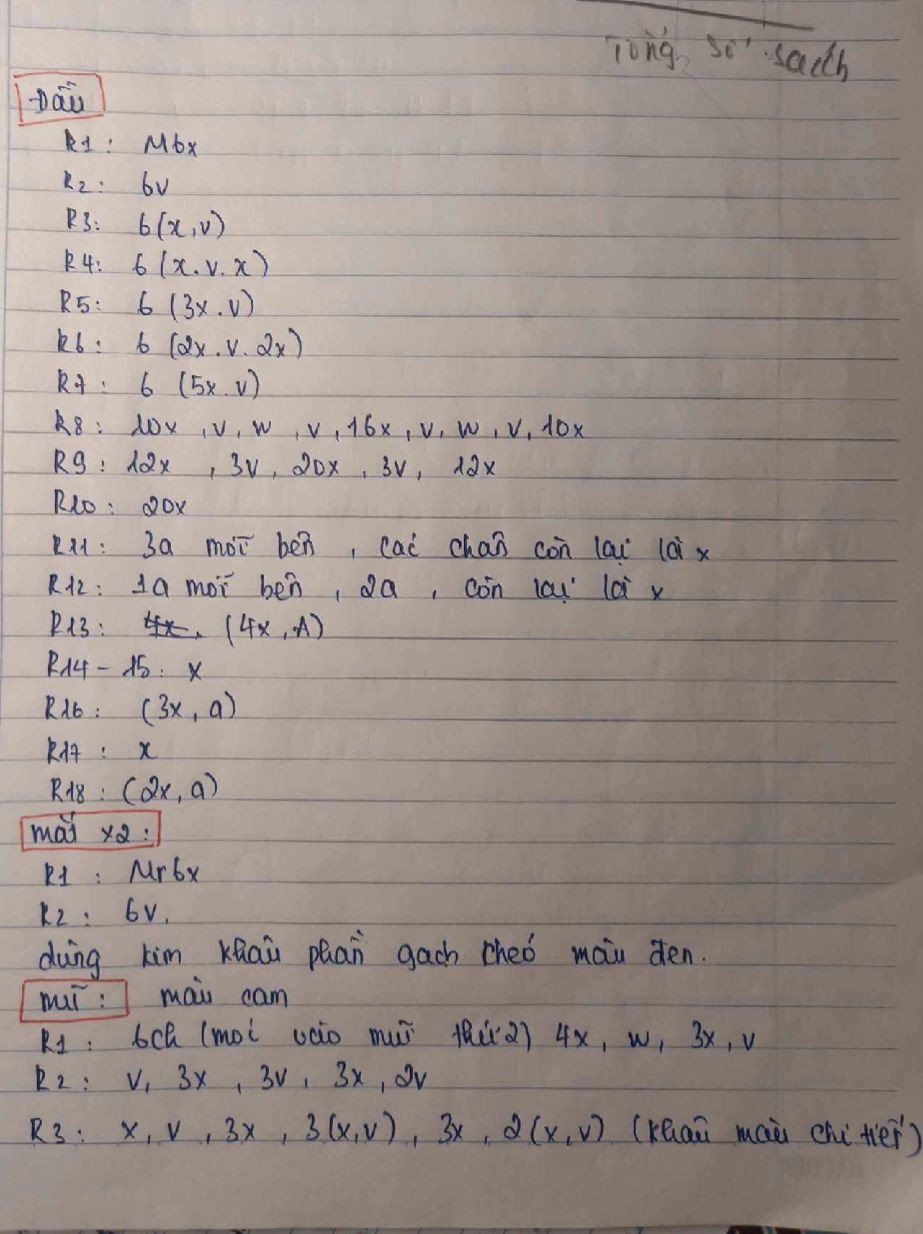 Tổng số sách
Đầu
R1: M6x
R2: 6v
R3: 6(x,v)
R4: 6(x.v.x)
R5: 6(3x.v)
R6: 6(2x.v.2x)
R7: 6(5x.v)
R8: 10x, v, w, v, 16x, v, w, v, 10x
R9: 12x, 3v, 20x, 3v, 12x
R10: 20x
R11: 3a mỗi bên, các chân còn lại là x
R12: 1a mỗi bên, 2a, còn lại là x
R13: 4x, (4x, A)
R14-15: x
R16: (3x, a)
R17: x
R18: (2x, a)
mắt x2:
R1: Mr6x
R2: 6V.
dùng kim khâu phần gạch chéo màu đen.
mũi: màu cam
R1: 6ch (móc vào mũi thứ 2) 4x, w, 3x, v
R2: v, 3x, 3v, 3x, 2v
R3: x, v, 3x, 3(x,v), 3x, 2(x,v) (khâu màu chi tiết)